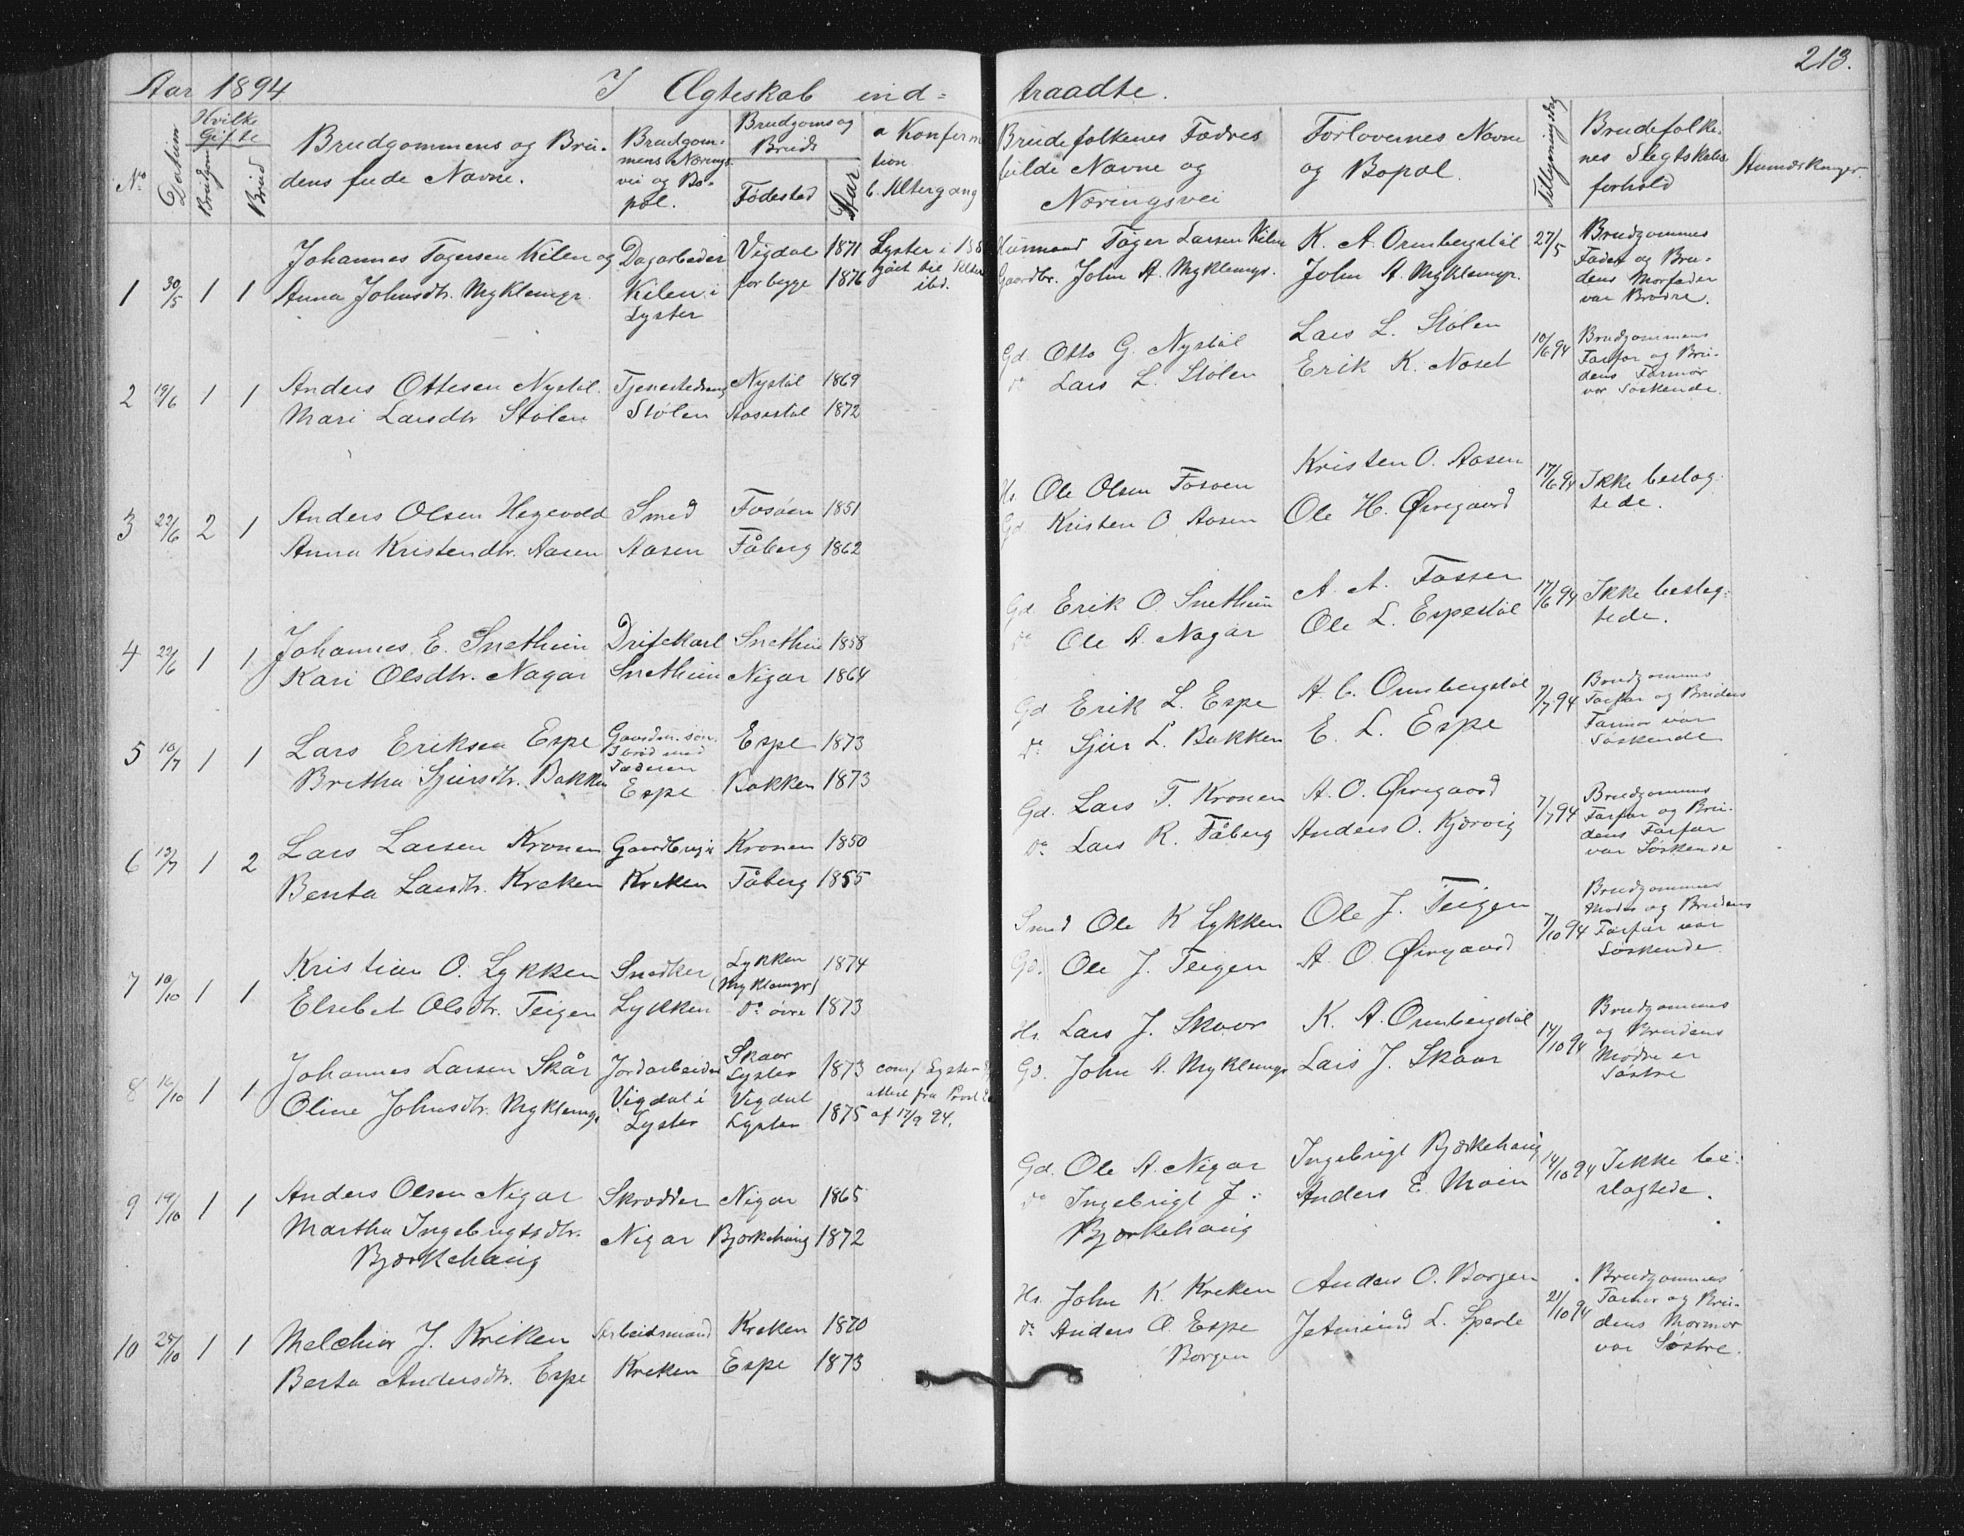 213.
Aar 1894 I Ægteskab ind= traadte.
No
Datum
Hvilke Gifte
Brudgom
Brud
Brudgommens og Bru-
dens fulde Navne.
Brudgom-
mens Nærings
vei og Bo-
pæl.
Brudgoms og
Bruds
Fødested
Aar
a Konferm
tion
b. Altergang
Brudefolkenes Fædres
fulde Navne og
Næringsvei
Forlovernes Navne
og Bopæl.
Tillysningsdag
Brudefolke-
nes Slegtskabs
forhold
Anmærkninger.
1 30/5 1 1
Johannes Togersen Kilen og
Anna Johnsdtr. Myklemyr.
Dagarbeder
Kilen i
Lyster
Vigdal 1871
for begge 1876
Lyster i 188
gået til Alter
ibd.
Husmand Töger Larsen Kilen
Gaardbr. John A. Myklemyr.
K. A. Ormbergstøl
John A. Myklemyr.
27/5
Brudgommes
Fader og Bru-
dens Morfader
var Brødre.
2 19/6 1 1
Anders Ottesen Nystøl.
Mari Larsdtr Stølen
Tjenestedreng
Stølen
Nystøl 1869
Aasestøl 1872
Gd. Otto G. Nystøl
do Lars L. Stølen
Lars L. Stølen
Erik K. Noset
10/6 94
Brudgommens
Farfar og Bru-
dens Farmor
var Søskende.
3 22/6 2 1
Anders Olsen Hegevold
Anna Kristendtr. Aasen
Smed
Aasen
Fosøen 1851
Fåberg 1862
Hs. Ole Olsen Fosøen
Gd Kristen O. Aasen
Kristen O. Aasen
Ole H. Øvregaard
17/6 94
Ikke beslæg-
tede.
4 22/6 1 1
Johannes E. Snethun
Kari Olsdtr. Nagar
Driftekarl
Snethun
Snethun 1858
Nigar 1864
Gd Erik O. Snethun
do Ole A. Nagar
A. A. Fasser
Ole L. Espestøl
17/6 94
Ikke beslæg-
tede.
5 10/7 1 1
Lars Eriksen Espe
Bretha Sjursdtr. Bakken
Gaardm. søn.
I brød med
Faderen
Espe
Espe 1873
Bakken 1873
Gd Erik L. Espe
do Sjur L. Bakken
A. C. Ormbergstøl
E. L. Espe
7/7 94
Brudgommens
Farfar og Brudens
Farmor var
Søskende
6 12/7 1 2
Lars Larsen Kronen
Benta Larsdtr. Kreken
Gaardbrug i
Kreken
Kronen 1850
Fåberg 1855
Gd. Lars T. Kronen
do Lars R. Fåberg
A. O. Øvregaard
Anders O. Kjærvig
7/7 94
Brudgommens
Farfar og Bru-
dens Farfar
var Søskende
7 10/10 1 1
Kristian O. Lykken
Elsebet Olsdtr. Teigen
Snedker
Lykken
Lykken 1874
(Myklemyr)
do øvre 1873
Smed Ole K Lykken
Gd. Ole J. Teigen
Ole J. Teigen
A. O Øvregaard
7/10 94
Brudgommens
Moder og Brudens
Farfar var
Søskende.
8 16/10 1 1
Johannes Larsen Skår
Oline Johnsdtr. Myklemyr
Jordarbeider
Vigdal i
Lyster
Skaar
Lyster 1873
Vigdal
Lyster 1875
conf Lyster
attest fra Provst
af 17/9 94.
Hs. Lars J. Skaar
Gd. John A. Myklemyr
K. A. Ormbergstøl
Lars J. Skaar
14/10 94
Brudgommens
og Brudens
Mødre er
Søstre
9 19/10 1 1
Anders Olsen Nigar
Martha Ingebrigtsdtr.
Bjørkehaug
Skrædder
Nigar
Nigar 1865
Bjørkehaug 1872
Gd. Ole A. Nigar
do Ingebrigt J.
Bjørkehaug
Ingebrigt Bjørkehaug
Anders E. Moin
14/10 94
Ikke be-
slægtede.
10 24/10 1 1
Melchior J. Kreken
Berta Andersdtr. Espe
Arbeidsmand
Kreken
Kreken 1870
Espe 1873
Hs. John K. Kreken
do Anders O. Espe
Borgen
Anders O. Borgen
Jetmund L. Sperle
21/10 94
Brudgommes
Farmor og Bru-
dens Mormor
var Søstre.